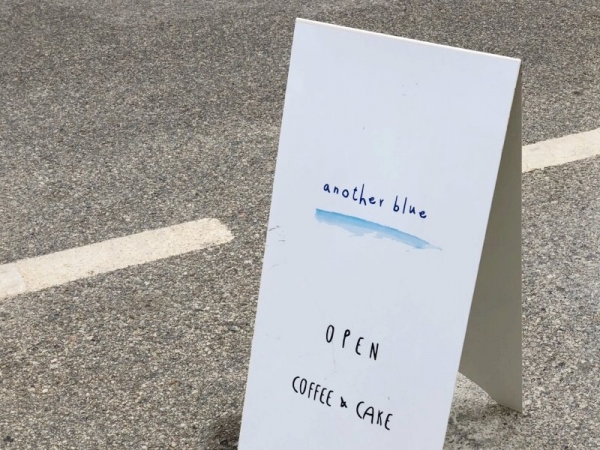 another blue
OPEN
COFFEE & CAKE